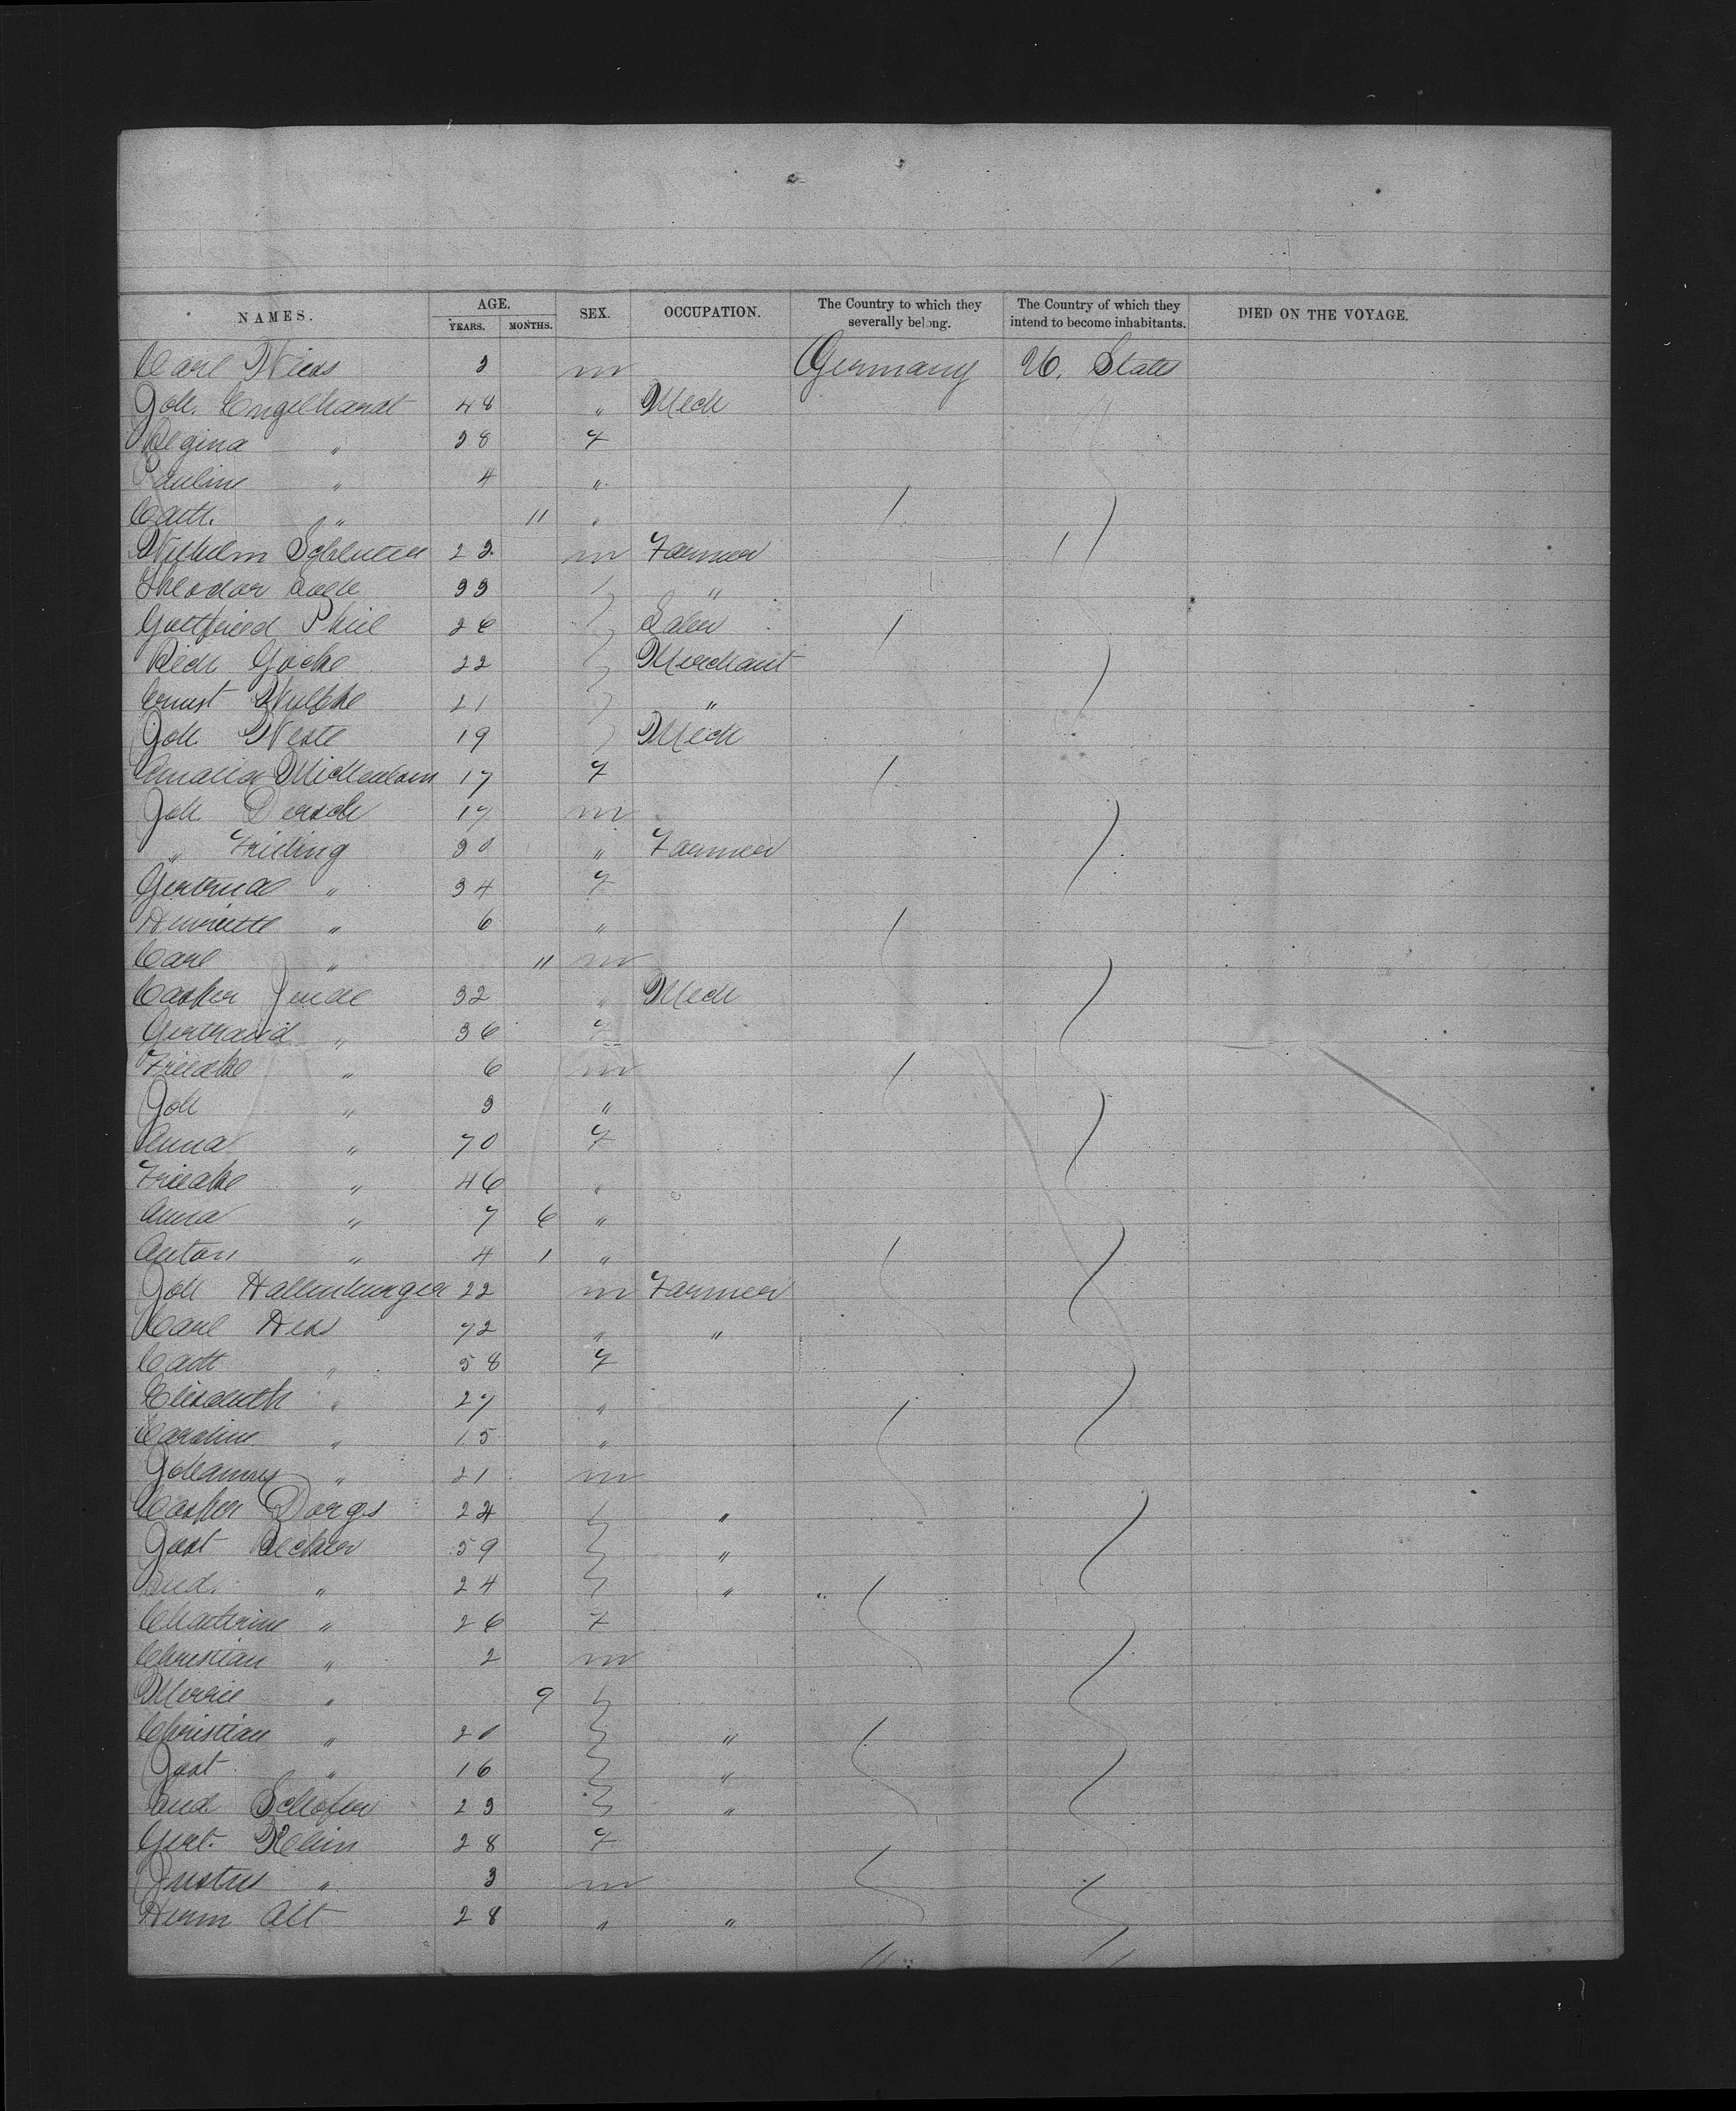 NAMES. AGE. YEARS. MONTHS. SEX. OCCUPATION. The Country to which they severally belong. The Country of which they intend to become inhabitants. DIED ON THE VOYAGE.
Carl 3 m Germany U. States
Joh. Engelhardt 48 " Mech
Regina " 38 f
Pauline " 4 "
Cath. " 11 "
Wilhelm Schluter 23 m Farmer
Theodor 33 "
Gottfried Phil 26
Rich Göcke 22 Merchant
Ernst 21 "
Joh 19 Mech
Amalia 17 f
Joh Dersch 17 m
" Frieling 30 " Farmer
Gertrude " 34 f
Henriette " 6 "
Carl " 11 m
Casper Jude 32 " Mech
" 36 f
" 6 m
Joh " 3 "
Anna " 70 f
" 46 "
Anna " 7 6 "
Anton " 4 1 "
Joh Hallenburger 22 m Farmer
Carl 72 " "
Cath " 58 f
Elisabeth " 27 "
Caroline " 15 "
Johannes " 21 m
Casper Dorgs 24 "
Jost Becker 59 "
And. " 24 "
Chatherine " 26 f
Christian " 2 m
" 9
Christian " 20 "
Jost " 16 "
And. Schäfer 23 "
Gert. Klein 28 f
Justus " 3 m
Herm Alt 28 " "